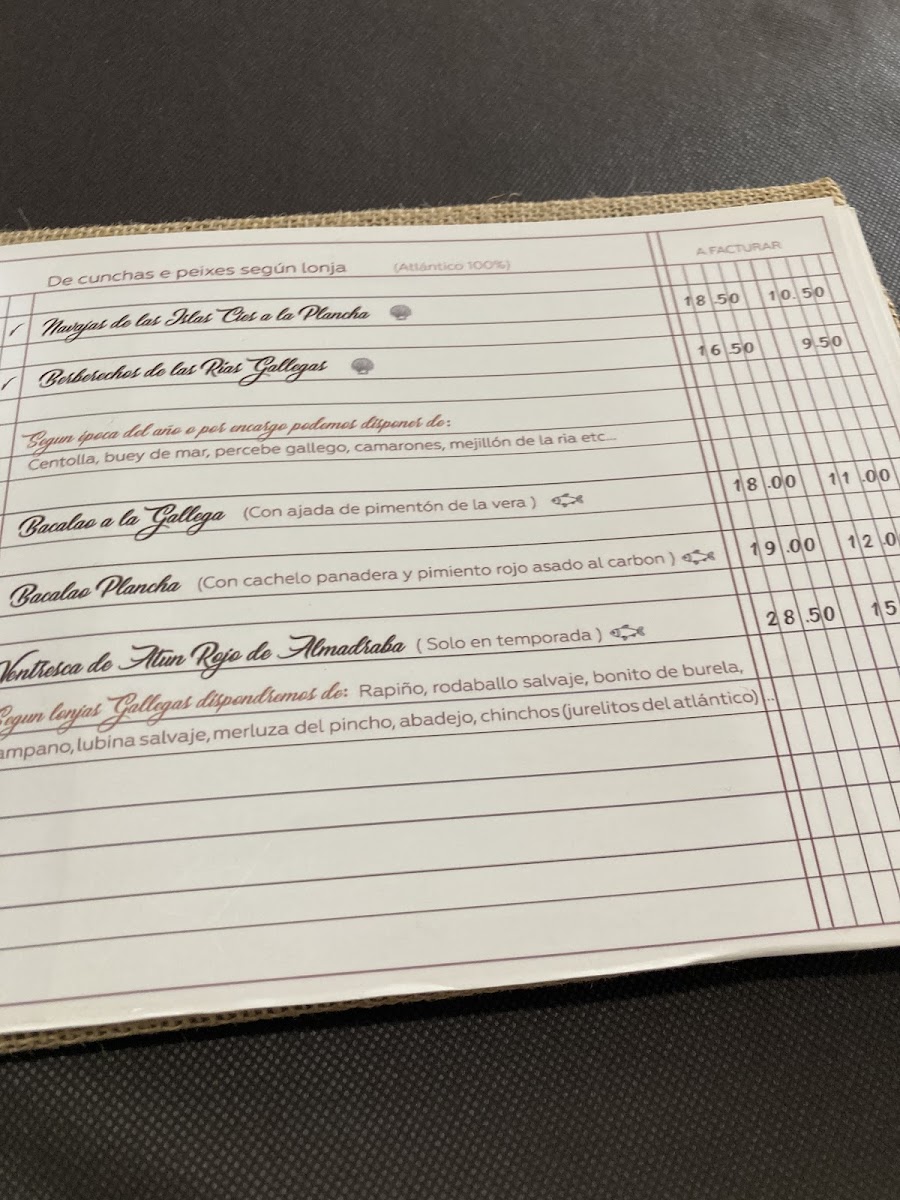 De cunchas e peixes según lonja (Atlántico 100%) A FACTURAR
Navajas de las Islas Cies a la Plancha 18.50 10.50
Berberechos de las Rías Gallegas 16.50 9.50
Segun época del año o por encargo podemos disponer de:
Centolla, buey de mar, percebe gallego, camarones, mejillón de la ria etc...
Bacalao a la Gallega (Con ajada de pimentón de la vera ) 18.00 11.00
Bacalao Plancha (Con cachelo panadera y pimiento rojo asado al carbon ) 19.00 12.0
Ventresca de Atun Rojo de Almadraba ( Solo en temporada ) 28.50 15
Segun lonjas Gallegas dispondremos de: Rapiño, rodaballo salvaje, bonito de burela,
ampano, lubina salvaje, merluza del pincho, abadejo, chinchos (jurelitos del atlántico) ...